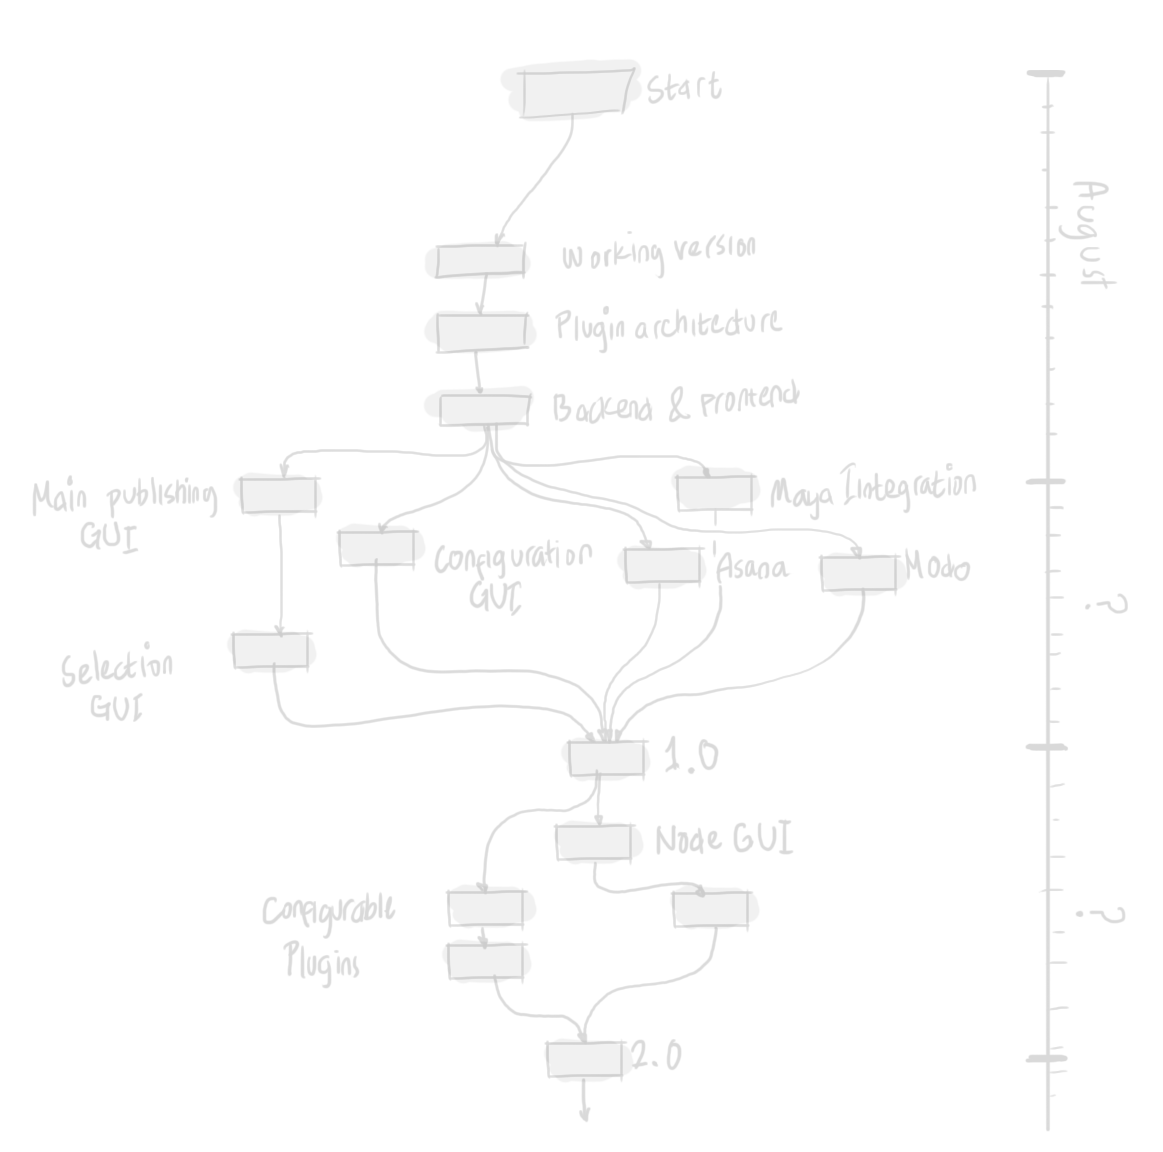 Start
August
Working version
Plugin architecture
Backend & Frontend
Main publishing
GUI
Maya IIntegration
Configuration
GUI
Asana
Modo
?
Selection
GUI
1.0
Node GUI
Configurable
Plugins
?
2.0